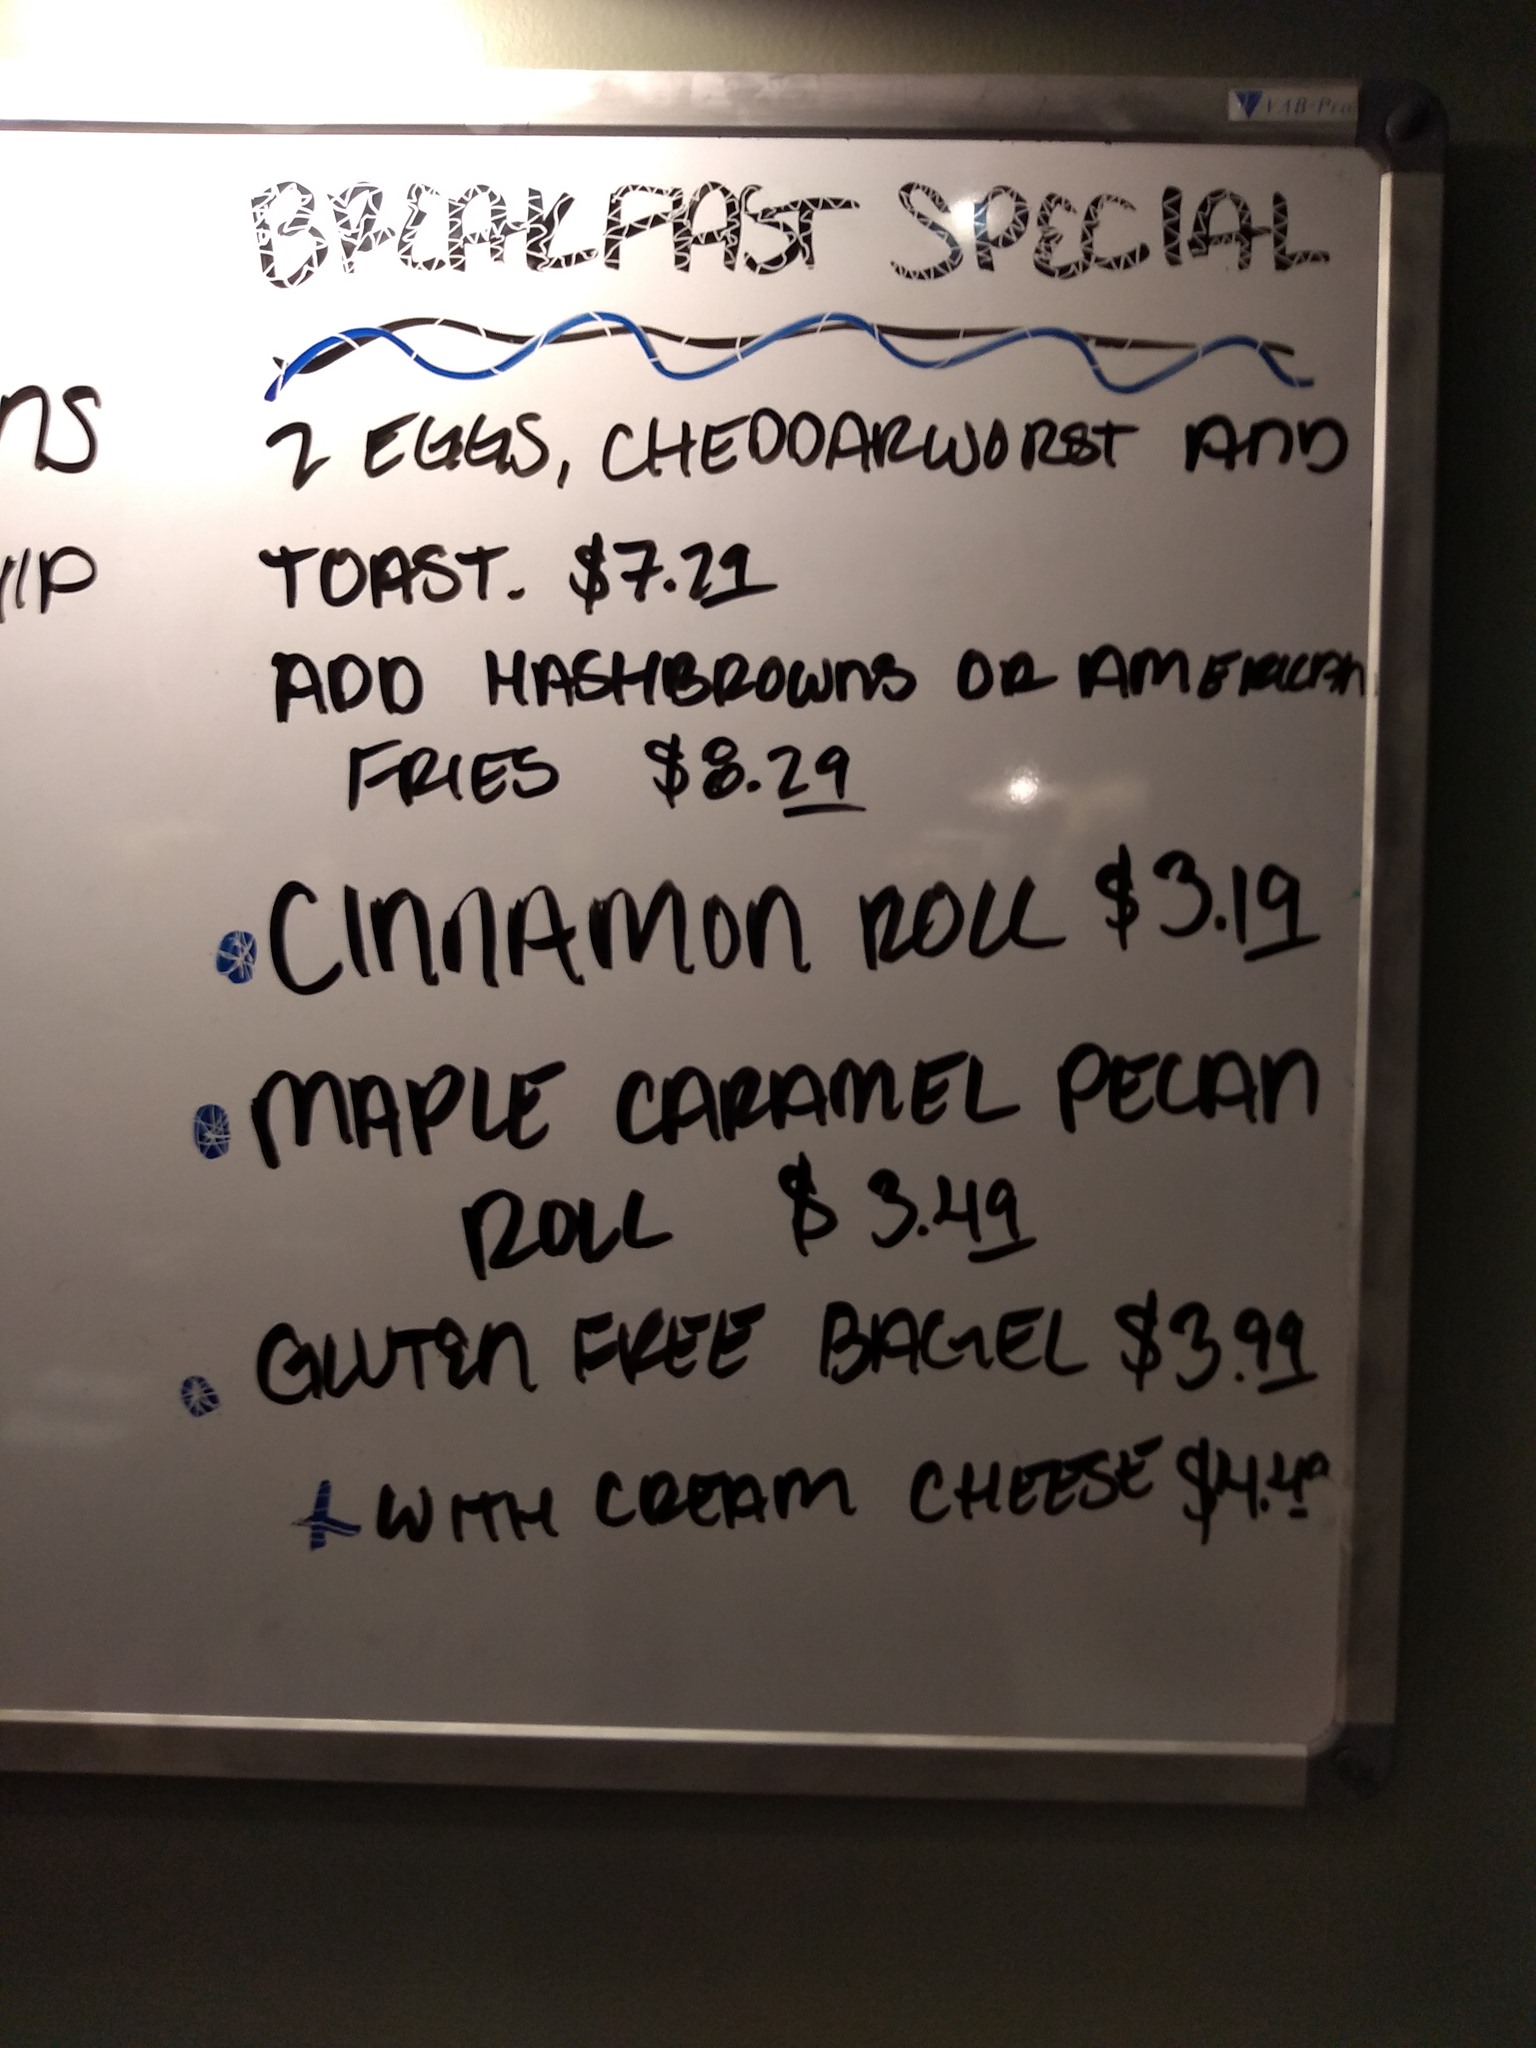 BREAKFAST SPECIAL
ns
2 EGGS, CHEDDARWORST AND
TOAST. $7.29
ADD HASHBROWNS OR AMERICAN
FRIES $8.29
CINNAMON ROLL $3.19
MAPLE CARAMEL PECAN
ROLL $3.49
GLUTEN FREE BAGEL $3.99
+ WITH CREAM CHEESE $4.49